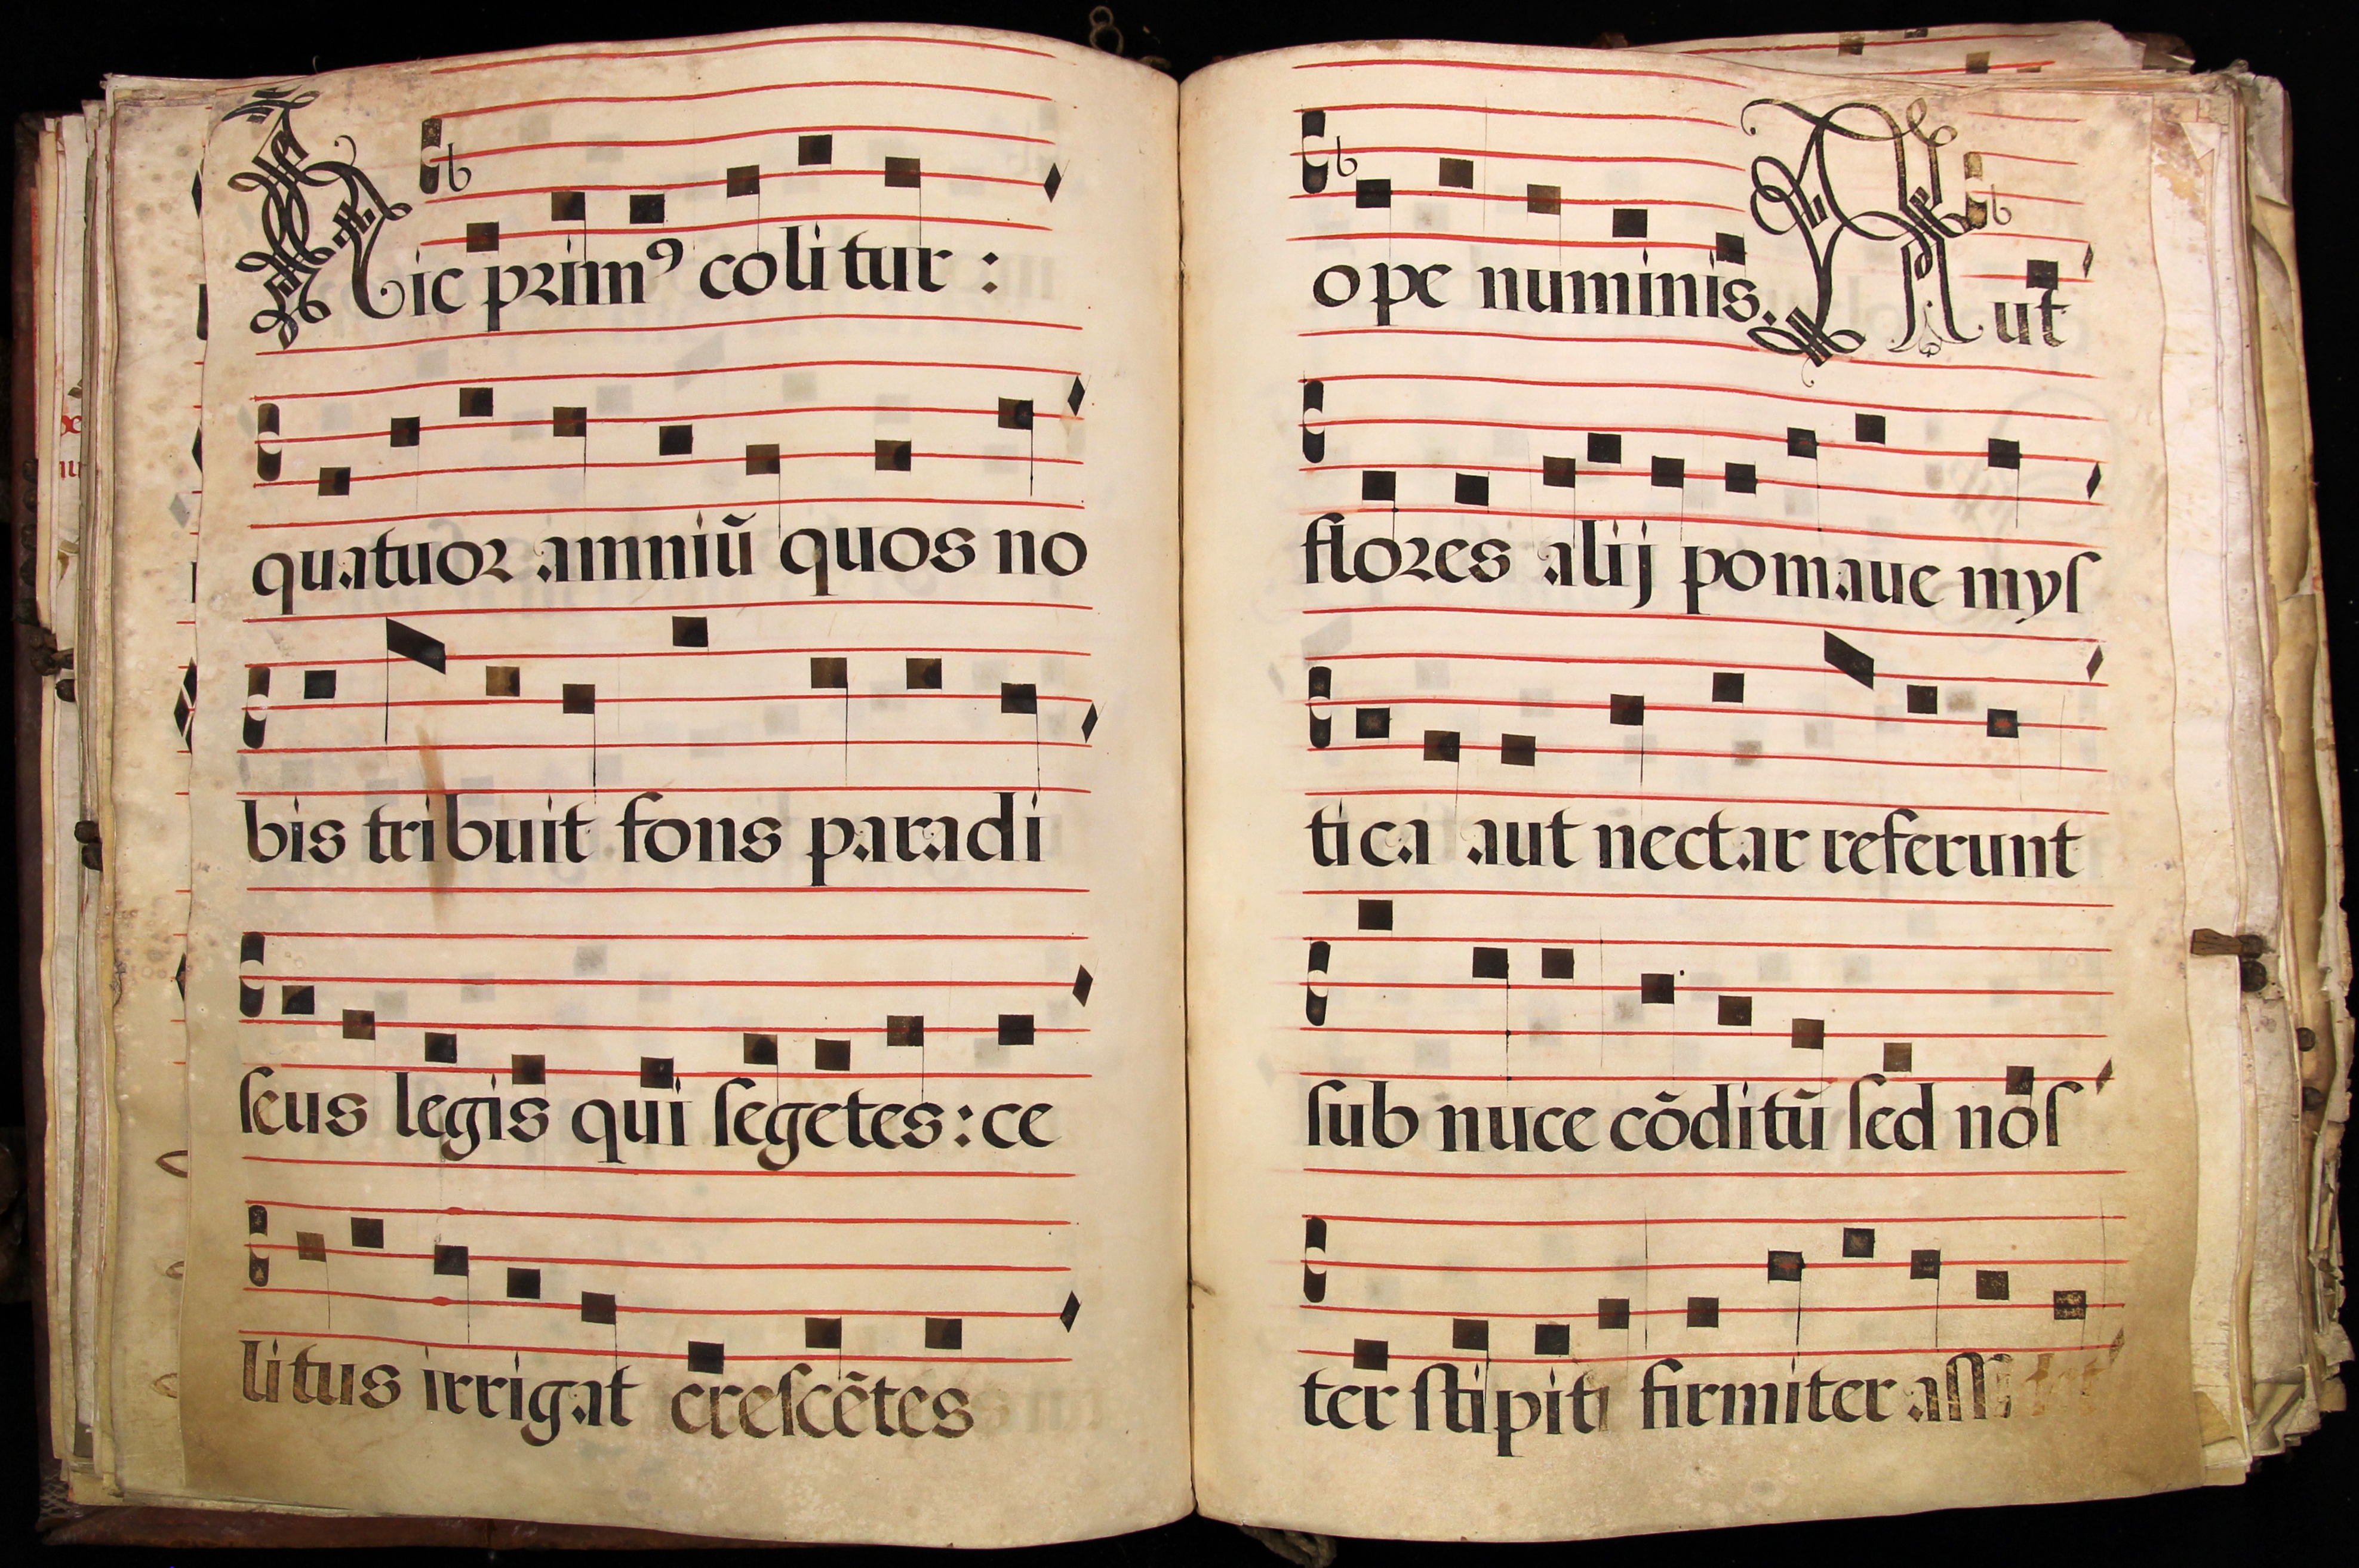 Hic prim⁹ colitur :
quatuor amniũ quos no
bis tribuit fons paradi
ſeus legis qui ſegetes : ce
litus irrigat creſcẽtes
ope numinis. Aut
flores alij pomaue myſ
tica aut nectar referunt
ſub nuce cõditũ ſed noſ
ter ſtipiti firmiter aſſidet